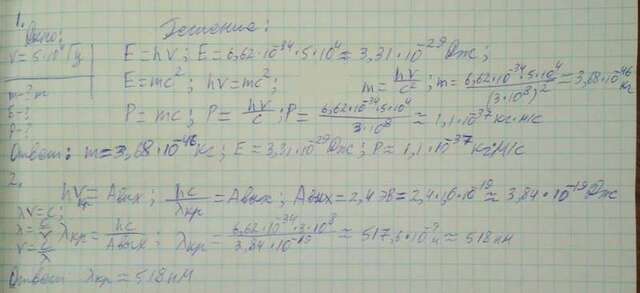 1.
Дано: Решение:
ν=5·10⁴Гц E=hν; E=6,62·10⁻³⁴·5·10⁴≈3,31·10⁻²⁹Дж;
m-? E=mc²; hν=mc²; m=hν/c²; m=6,62·10⁻³⁴·5·10⁴/(3·10⁸)²=3,68·10⁻⁴⁶кг
E-?
P-? P=mc; P=hν/c; P=6,62·10⁻³⁴·5·10⁴/3·10⁸≈1,1·10⁻³⁷кг·м/с
Ответ: m=3,68·10⁻⁴⁶кг; E=3,31·10⁻²⁹Дж; P≈1,1·10⁻³⁷кг·м/с
2.
hνкр=Aвых; hc/λкр=Aвых; Aвых=2,4эВ=2,4·1,6·10⁻¹⁹≈3,84·10⁻¹⁹Дж
λν=c;
λ=c/ν
ν=c/λ λкр=hc/Aвых; λкр=6,62·10⁻³⁴·3·10⁸/3,84·10⁻¹⁹≈517,6·10⁻⁹м≈518нм
Ответ: λкр≈518нм